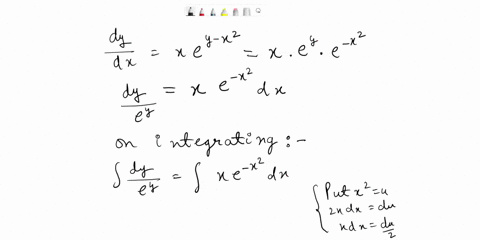 dy/dx = x e^{y-x^2} = x · e^y · e^{-x^2}
dy/e^y = x e^{-x^2} dx
on integrating :-
∫ dy/e^y = ∫ x e^{-x^2} dx
{ Put x^2 = u
2x dx = du
x dx = du/2